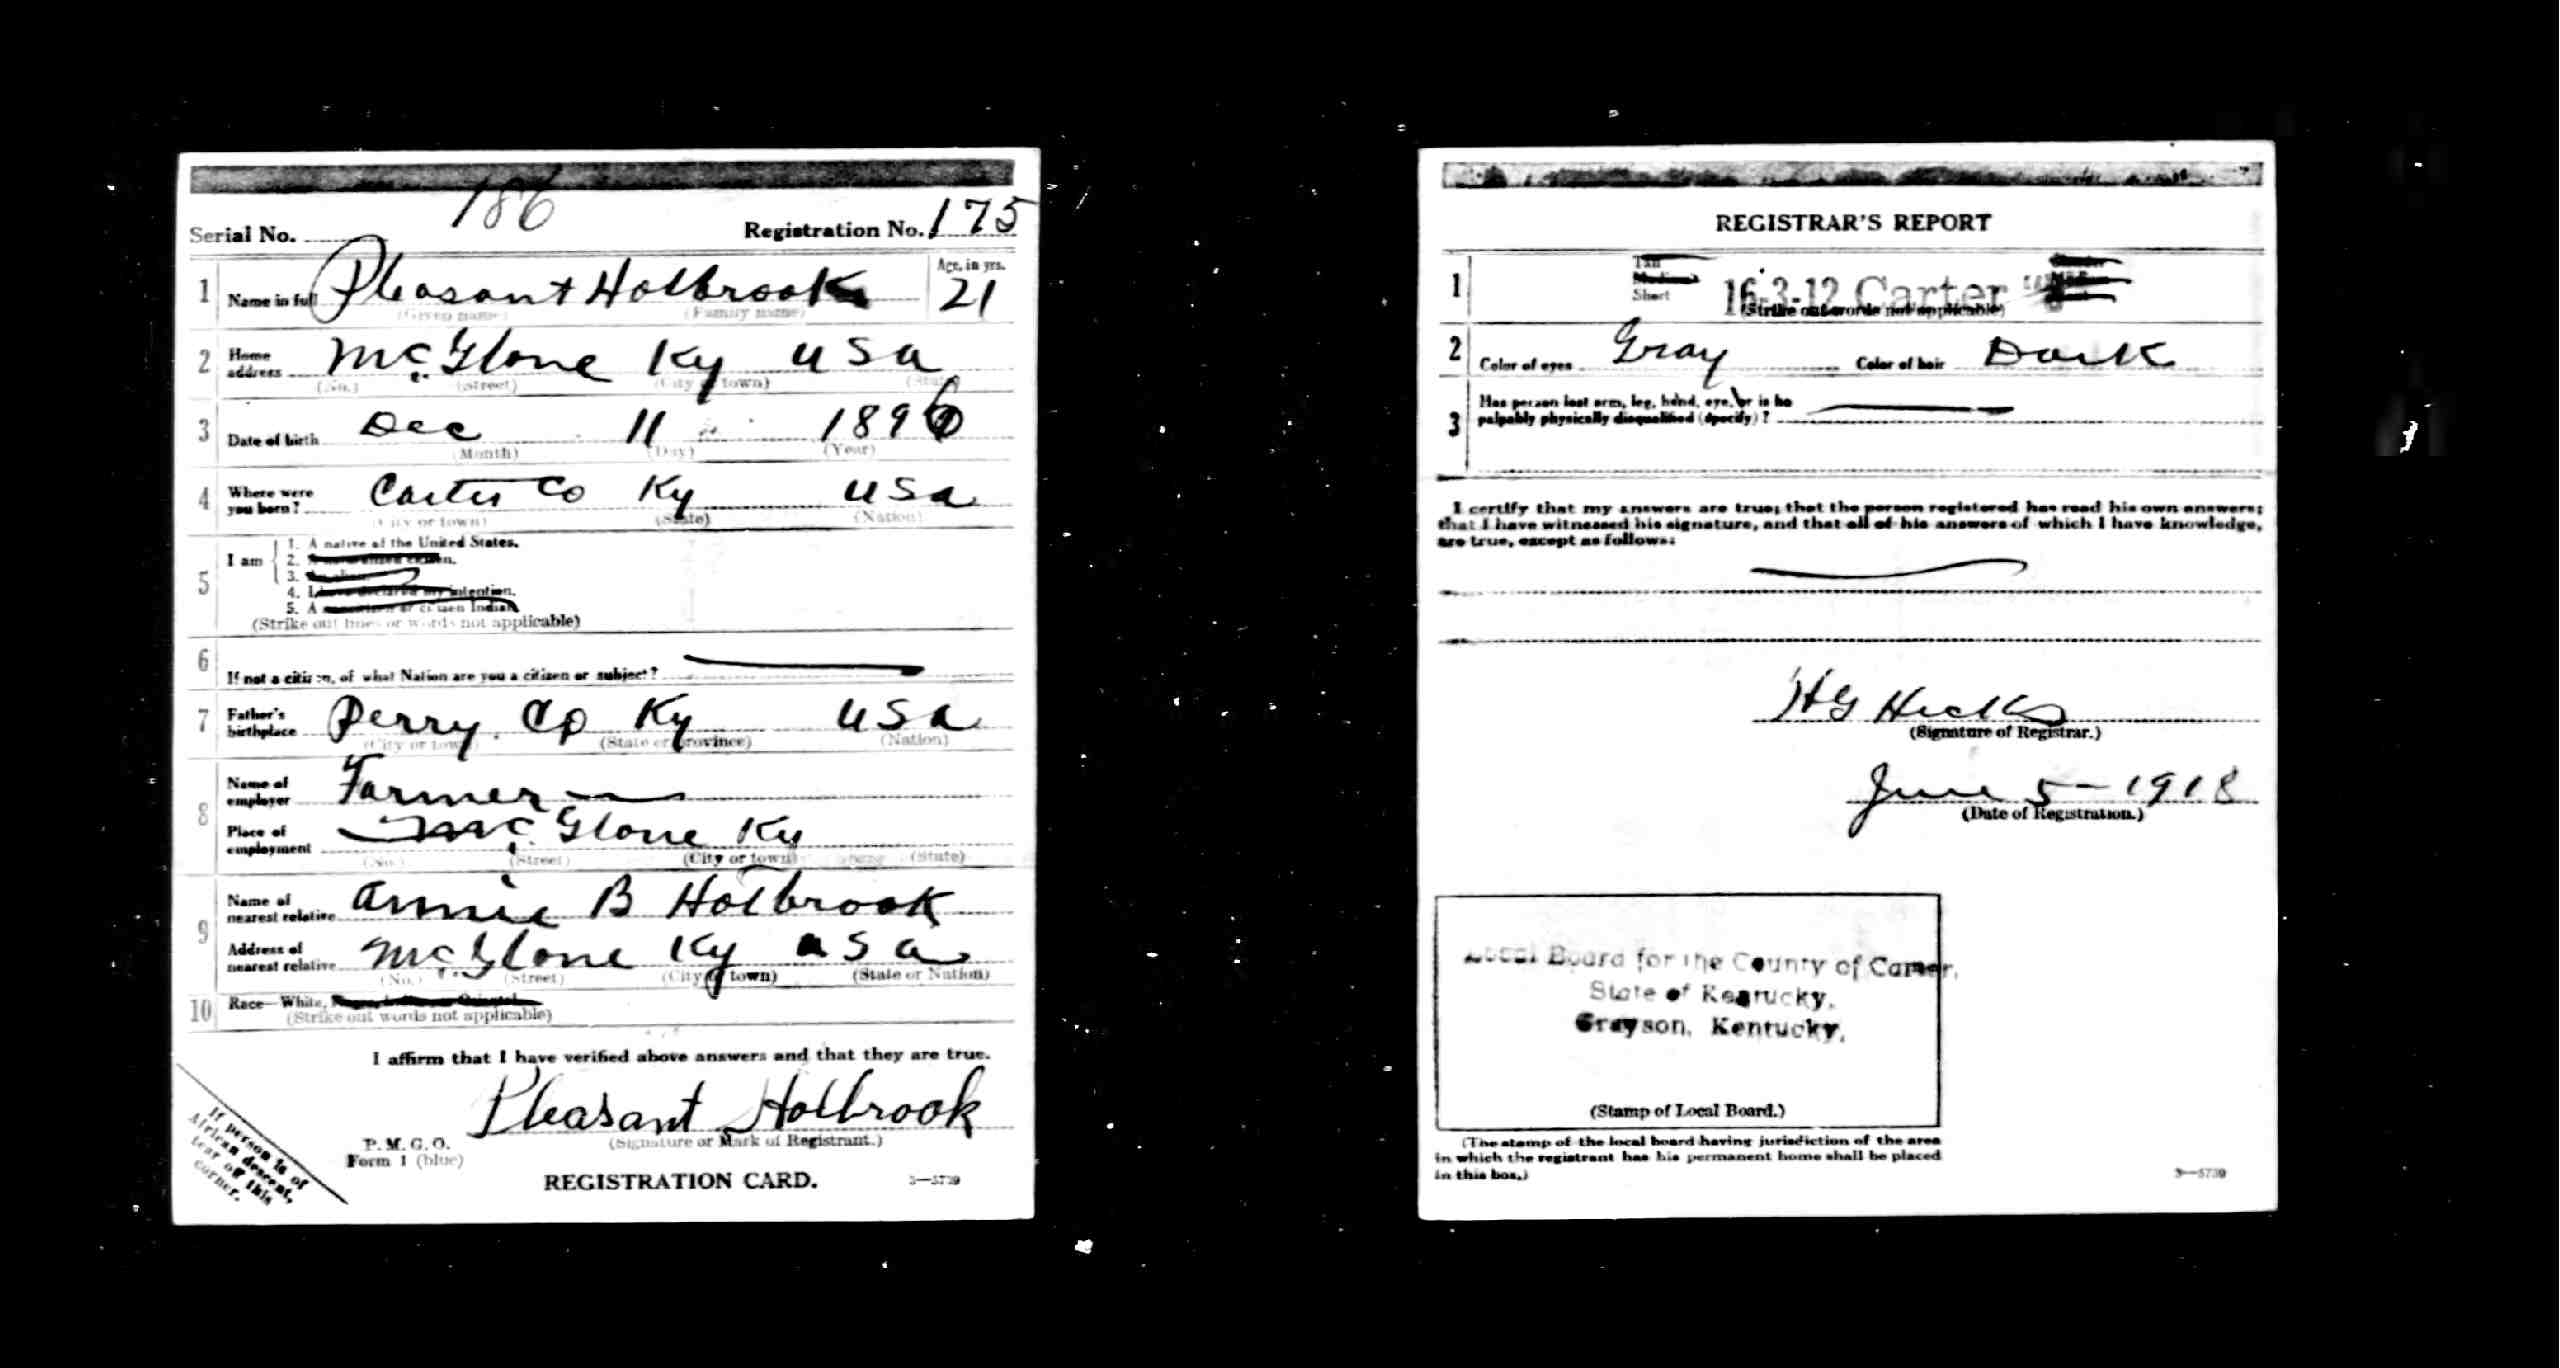 Serial No. 186 Registration No. 175
1 Name in full Pleasant Holbrook Age, in yrs. 21
(Given name) (Family name)
2 Home address McGlone Ky USA
(No.) (Street) (City or town) (State)
3 Date of birth Dec 11 1896
(Month) (Day) (Year)
4 Where were you born? Carter Co Ky USA
(City or town) (State) (Nation)
5 I am
1. A native of the United States.
2. A naturalized citizen.
3. An alien
4. I have declared my intention.
5. A citizen Indian
(Strike out lines or words not applicable)
6 If not a citizen, of what Nation are you a citizen or subject?
7 Father's birthplace Perry Co Ky USA
(City or town) (State or province) (Nation)
8 Name of employer Farmer
Place of employment McGlone Ky
(No.) (Street) (City or town) (State)
9 Name of nearest relative Annie B Holbrook
Address of nearest relative McGlone Ky USA
(No.) (Street) (City or town) (State or Nation)
10 Race—White,
(Strike out words not applicable)
I affirm that I have verified above answers and that they are true.
Pleasant Holbrook
(Signature or Mark of Registrant.)
P. M. G. O.
Form 1 (blue)
REGISTRATION CARD.
3—5739
If person is of
African descent,
tear off this
corner.
REGISTRAR'S REPORT
1 Tall
Medium
Short
16-3-12 Carter
(Strike out words not applicable)
2 Color of eyes Gray Color of hair Dark
3 Has person lost arm, leg, hand, eye, or is he
palpably physically disqualified (specify)?
I certify that my answers are true; that the person registered has read his own answers;
that I have witnessed his signature, and that all of his answers of which I have knowledge,
are true, except as follows:
HG Hicks
(Signature of Registrar.)
June 5-1918
(Date of Registration.)
Local Board for the County of Carter,
State of Kentucky,
Grayson, Kentucky,
(Stamp of Local Board.)
(The stamp of the local board having jurisdiction of the area
in which the registrant has his permanent home shall be placed
in this box.)
3—5739